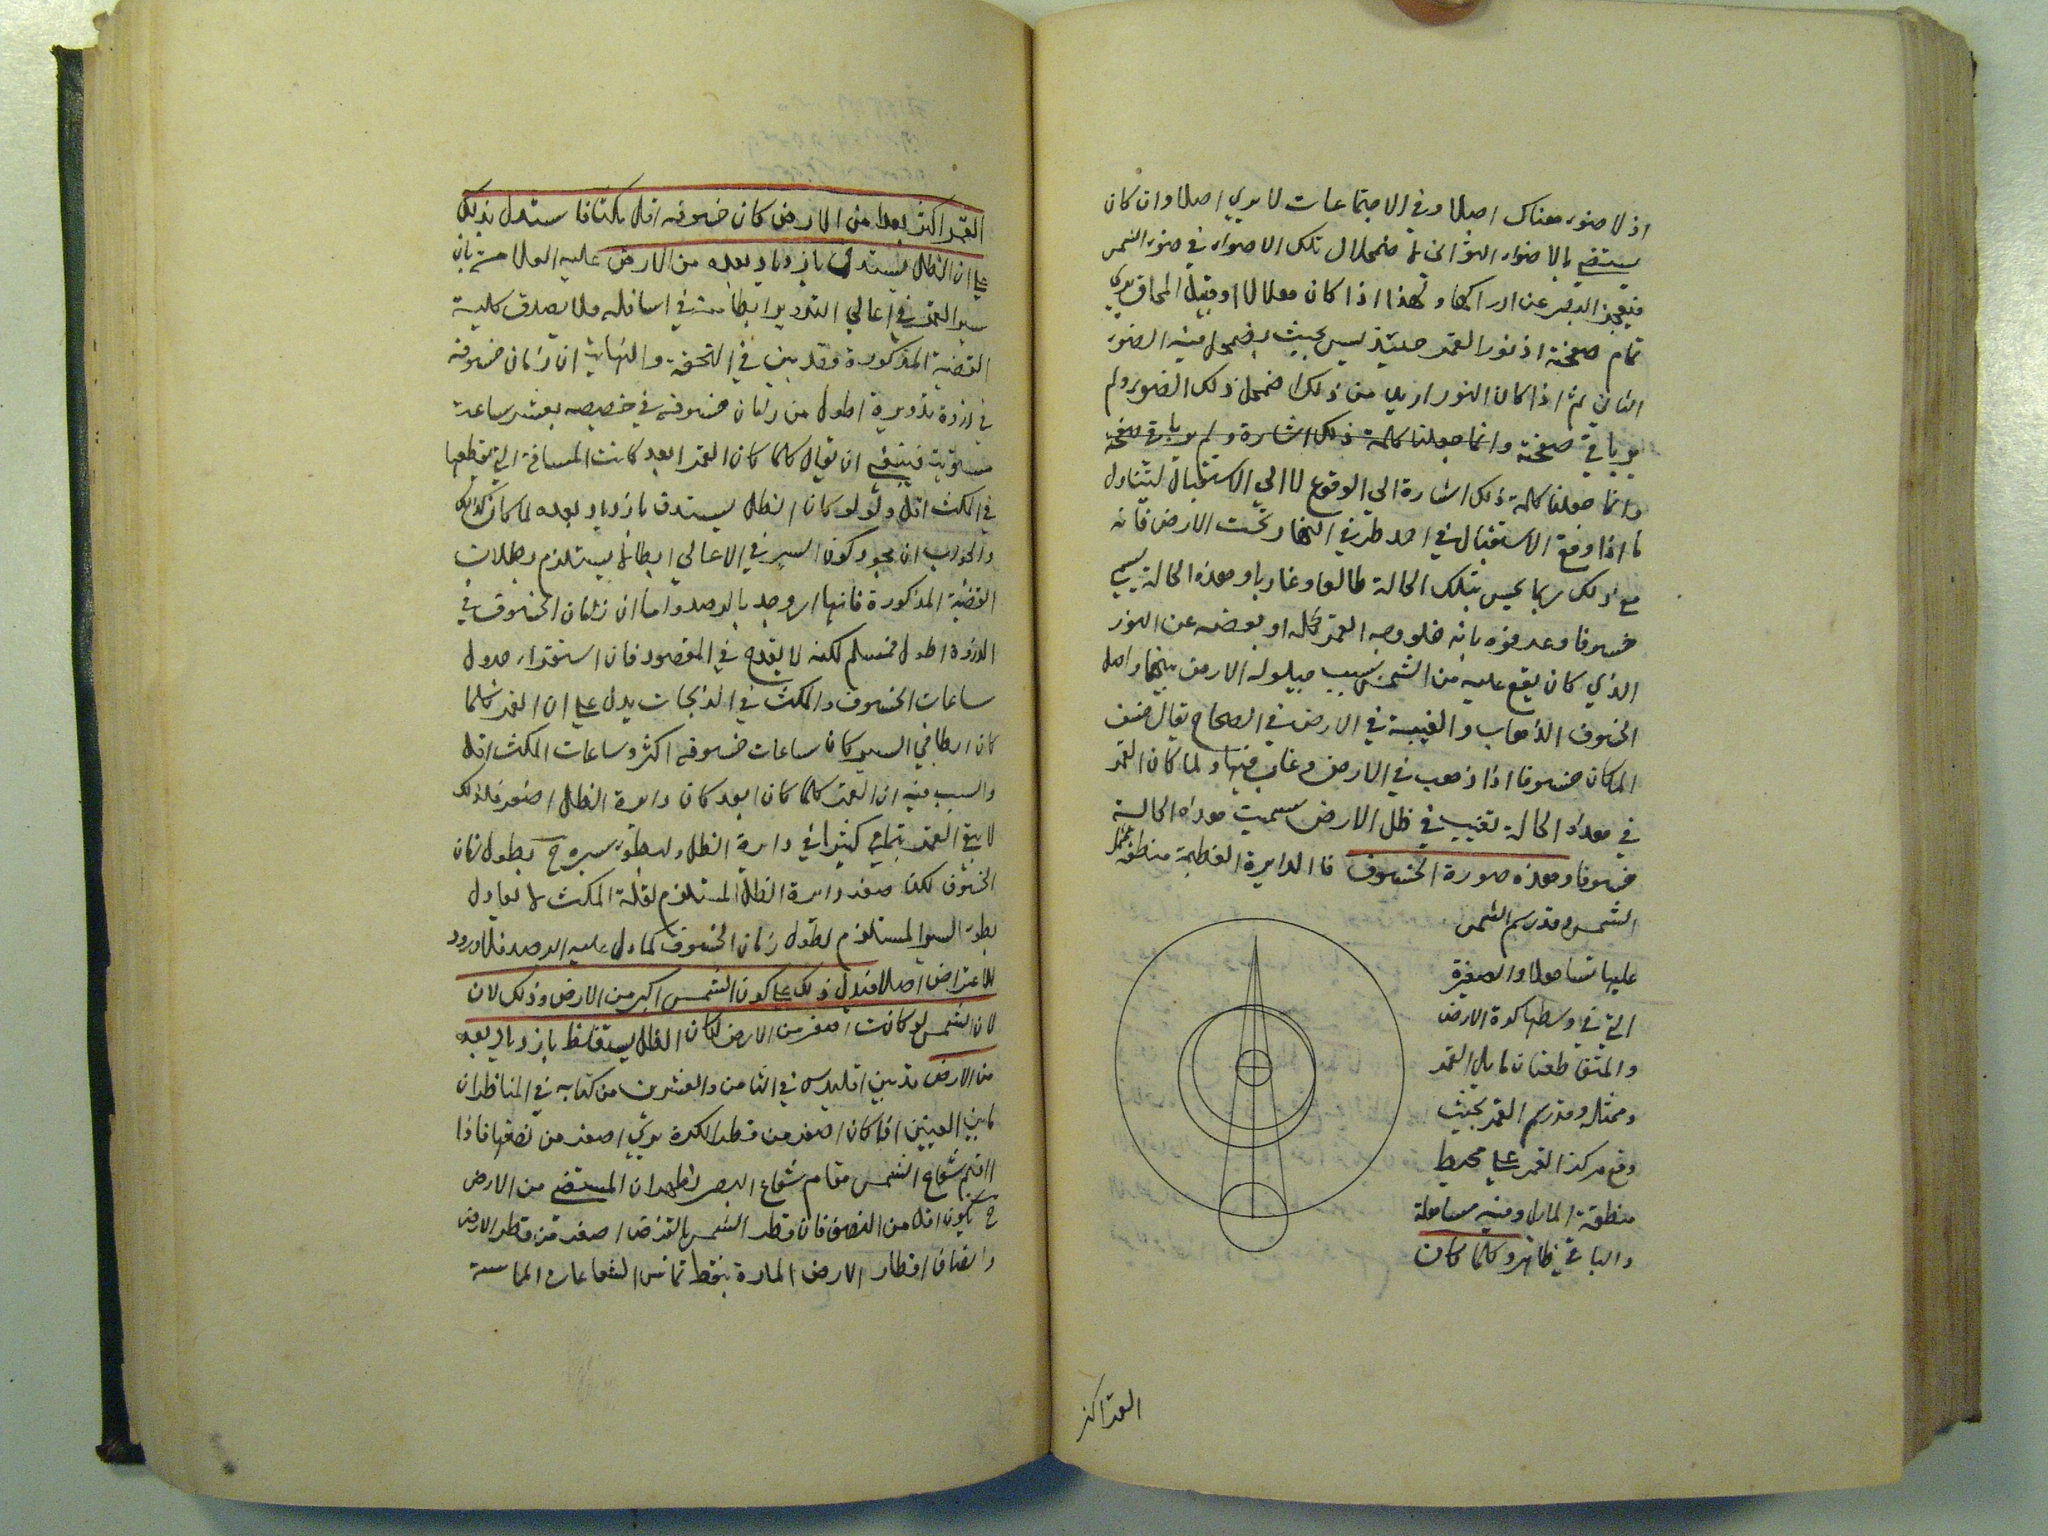 اذ لا ضوء هناك اصلا وفي الاجتماعات لا يري اصلا وان كان
يستضي بالاضواء الثواني لاضمحلال تلك الاضواء في ضوء الشمس
فيعجز البصر عن ادراكها ولهذا اذا كان هلالا او قبيل المحاق يري
تمام صفحته اذ نور القمر حينئذ ليس بحيث يضمحل فيه الضوء
الثاني ثم اذا كان النور ازيد من ذلك اضمحل ذلك الضوء ولم
ير باقي صفحته وانما جعلنا كلمة ذلك اشارة ولم ير باقي صفحته
وانما جعلنا كلمة ذلك اشارة الي الوقوع لا الي الاستقبال ليتناول
ما اذا وقع الاستقبال في احد طرفي النهار تحت الارض فانه
مع ذلك ربما يحس بتلك الحالة طالعا وغاربا وهذه الحالة يسمي
خسوفا وعرفوه بانه خلو وجه القمر كله او بعضه عن النور
الذي كان يقع عليه من الشمس بسبب حيلولة الارض بينهما واصل
الخسوف الذهاب والغيبة في الارض في الصحاح يقال خسف
المكان خسوفا اذا ذهب في الارض وغاب فيها ولما كان القمر
في هذه الحالة تغيب في ظل الارض سميت هذه الحالة
خسوفا وهذه صورة الخسوف فالدايرة العظيمة منطقة ممثل
الشمس وقد رسم الشمس
عليها تساهلا والصغيرة
التي في وسطها كرة الارض
والمتقاطعتان مايل القمر
وممثله وقد رسم القمر بحيث
وقع مركز القمر علي محيط
منطقة المايل وفيه مساهلة
والباقي ظاهر وكلما كان
القمر اكثر
القمر اكثر بعدا من الارض كان خسوفه اقل مكثا فاستدل بذلك
علي ان الظل يستدق بازدياد بعده من الارض عليه العلامة بان
سير القمر في اعالي التدوير ابطا منه في اسافله فلا يصدق كلية
القضية المذكورة وقد بين في التحفة والنهاية ان زمان خسوفه
في ذروة تدويره اطول من زمان خسوفه في حضيضه بعشر ساعة
مستوية فينبغي ان يقال كلما كان القمر ابعد كانت المسافة التي يقطعها
في المكث اقل ولو كان الظل يستدق بازدياد بعده لما كان كذلك
والجواب ان مجرد كون السير في الاعالي ابطا لا يستلزم بطلان
القضية المذكورة فانها وجد بالرصد واما ان زمان الخسوف في
الذروة اطول فمسلم لكنه لا يقدح في المقصود فان استقراء جدول
ساعات الخسوف والمكث في الزيجات يدل علي ان القمر كلما
كان ابطا في السير كان ساعات خسوفه اكثر وساعات المكث اقل
والسبب فيه ان القمر كلما كان ابعد كان دايرة الظل اصغر فلذلك
لا يبقي القمر بتمامه كثيرا في دايرة الظل ولبطوء سيره ح يطول زمان
الخسوف لكن صغر دايرة الظل المستلزم لقلة المكث لا يعادل
بطوء السير المستلزم لطول زمان الخسوف كما دل عليه الرصد فلا ورود
للاعتراض اصلا فيدل ذلك علي كون الشمس اكبر من الارض وذلك لان
لان الشمس لو كانت اصغر من الارض لكان الظل يستغلظ بازدياد بعده
من الارض قد بين اقليدس في الثامن والعشرين من كتابه في المناظر ان
ما بين العينين اذا كان اصغر من قطر الكرة يري اصغر من نصفها فاذا
اقيم شعاع الشمس مقام شعاع البصر لظهر ان المستضي من الارض
ح يكون اقل من النصف فان قطر الشمس بالفرض اصغر من قطر الارض
وانصاف اقطار الارض المارة بنقط تماس الشعاعات المماسة